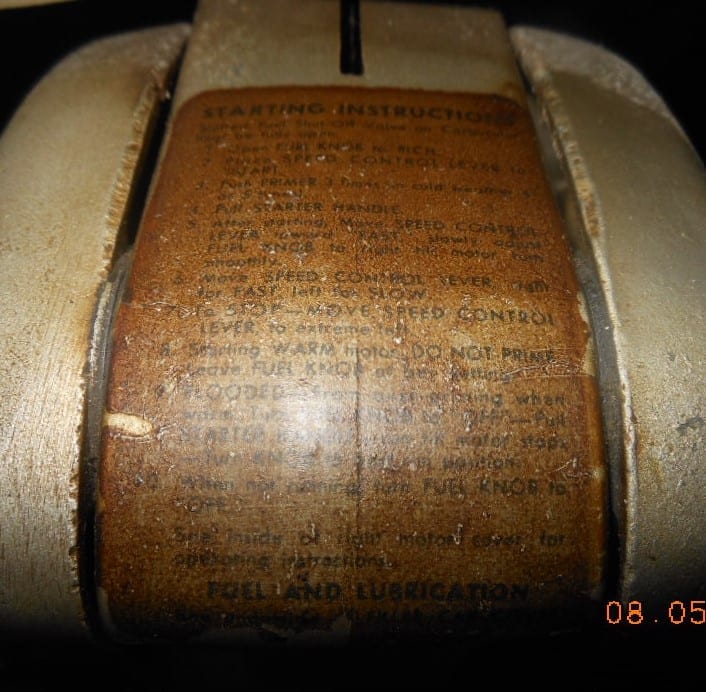 STARTING INSTRUCTIONS
Shut-Off Valve on
be fully open.
Open FUEL KNOB to RICH.
2. Place SPEED CONTROL LEVER to
START.
3. Push PRIMER 3 times in cold weather
4. Pull STARTER HANDLE.
5. After starting, Move SPEED CONTROL
LEVER toward FAST, slowly adjust
FUEL KNOB to right til motor runs
smoothly.
6. Move SPEED CONTROL LEVER right
for FAST, left for SLOW.
7. To STOP—MOVE SPEED CONTROL
LEVER, to extreme left.
8. Starting WARM motor, DO NOT PRIME
Leave FUEL KNOB at
9. FLOODED when
KNOB to "OFF"—Pull
STARTER motor
KNOB position.
10. When not running, turn FUEL KNOB to
"OFF."
See inside of right motor cover for
operating instructions.
FUEL AND LUBRICATION
08.05